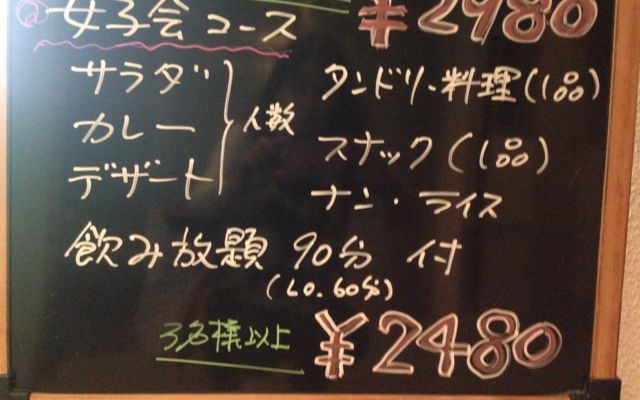 ¥2980
女子会コース
サラダ
カレー
デザート
人数
タンドリー料理(1品)
スナック(1品)
ナン・ライス
飲み放題 90分 付
(L.O.60分)
3名様以上
¥2480